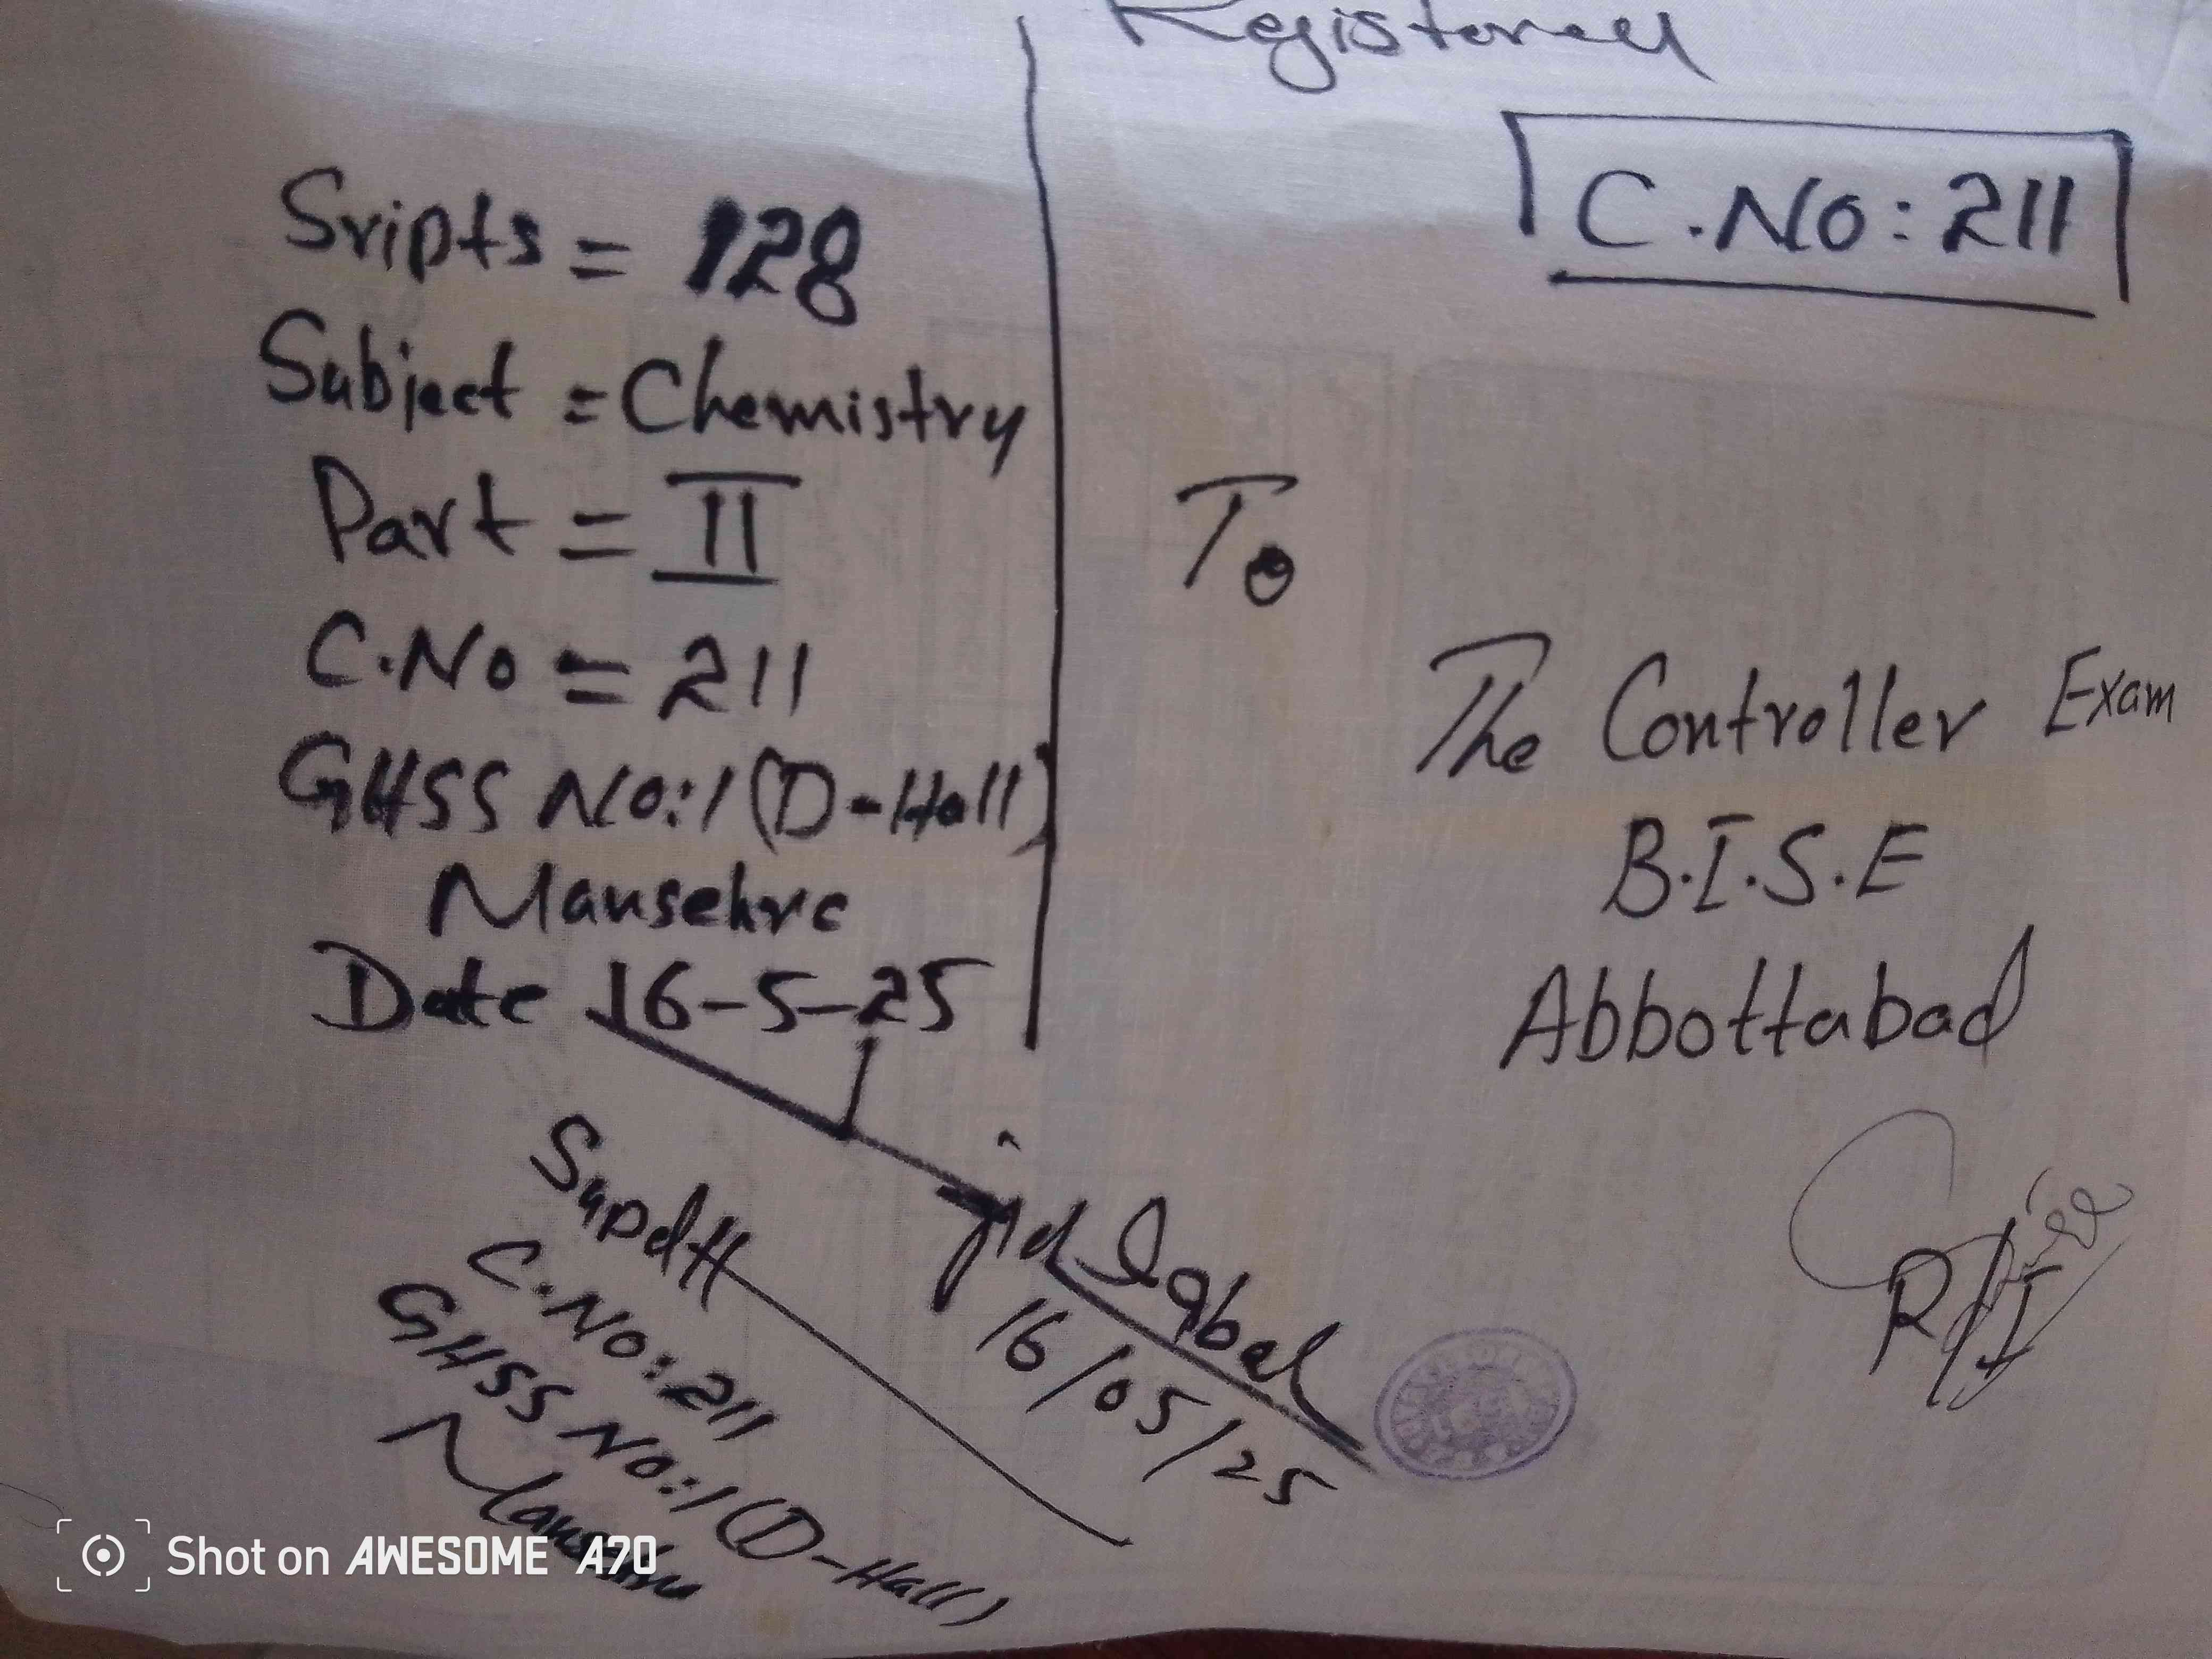 Registered
C.No: 211
Sripts = 128
Subject = Chemistry
Part = II
C.No = 211
GHSS No:1 (D-Hall)
Mansehra
Date 16-5-25
To
The Controller Exam
B.I.S.E
Abbottabad
Supdtt
C.No:211
GHSS No:1 (D-Hall)
Mansehra
Iqbal
16/05/25
R/I
Shot on AWESOME A70